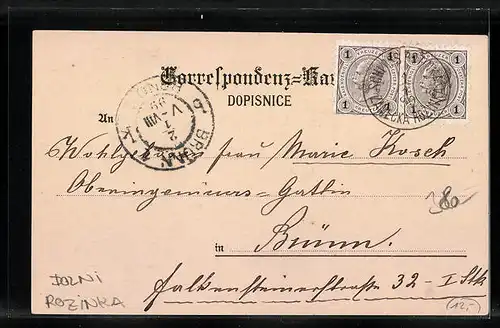 1 1 1 1
Correspondenz=Ka
DOPISNICE
An
BRÜNN
Wohlgeboren Frau Marie Kosch
Oberingenieurs=Gattin
in Brünn.
Falkensteinerstraße 32 - I Stk
380
DOLNI
ROZINKA
(12,-)